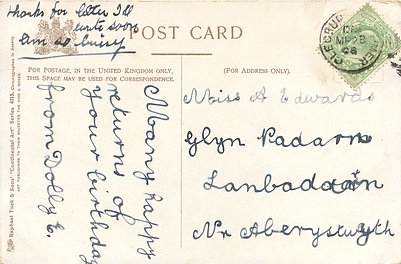 thanks for letter I'll
write soon
Am so busy
POST CARD
FOR POSTAGE, IN THE UNITED KINGDOM ONLY,
THIS SPACE MAY BE USED FOR CORRESPONDENCE.
(FOR ADDRESS ONLY.)
Many happy
returns of
your birthday
from Dolly E.
Miss A Edwards
Glyn Padarn
Lanbadarn
Nr Aberystwyth
Raphael Tuck & Sons' "Continental Art" Series
ART PUBLISHERS TO THEIR MAJESTIES THE KING AND QUEEN.